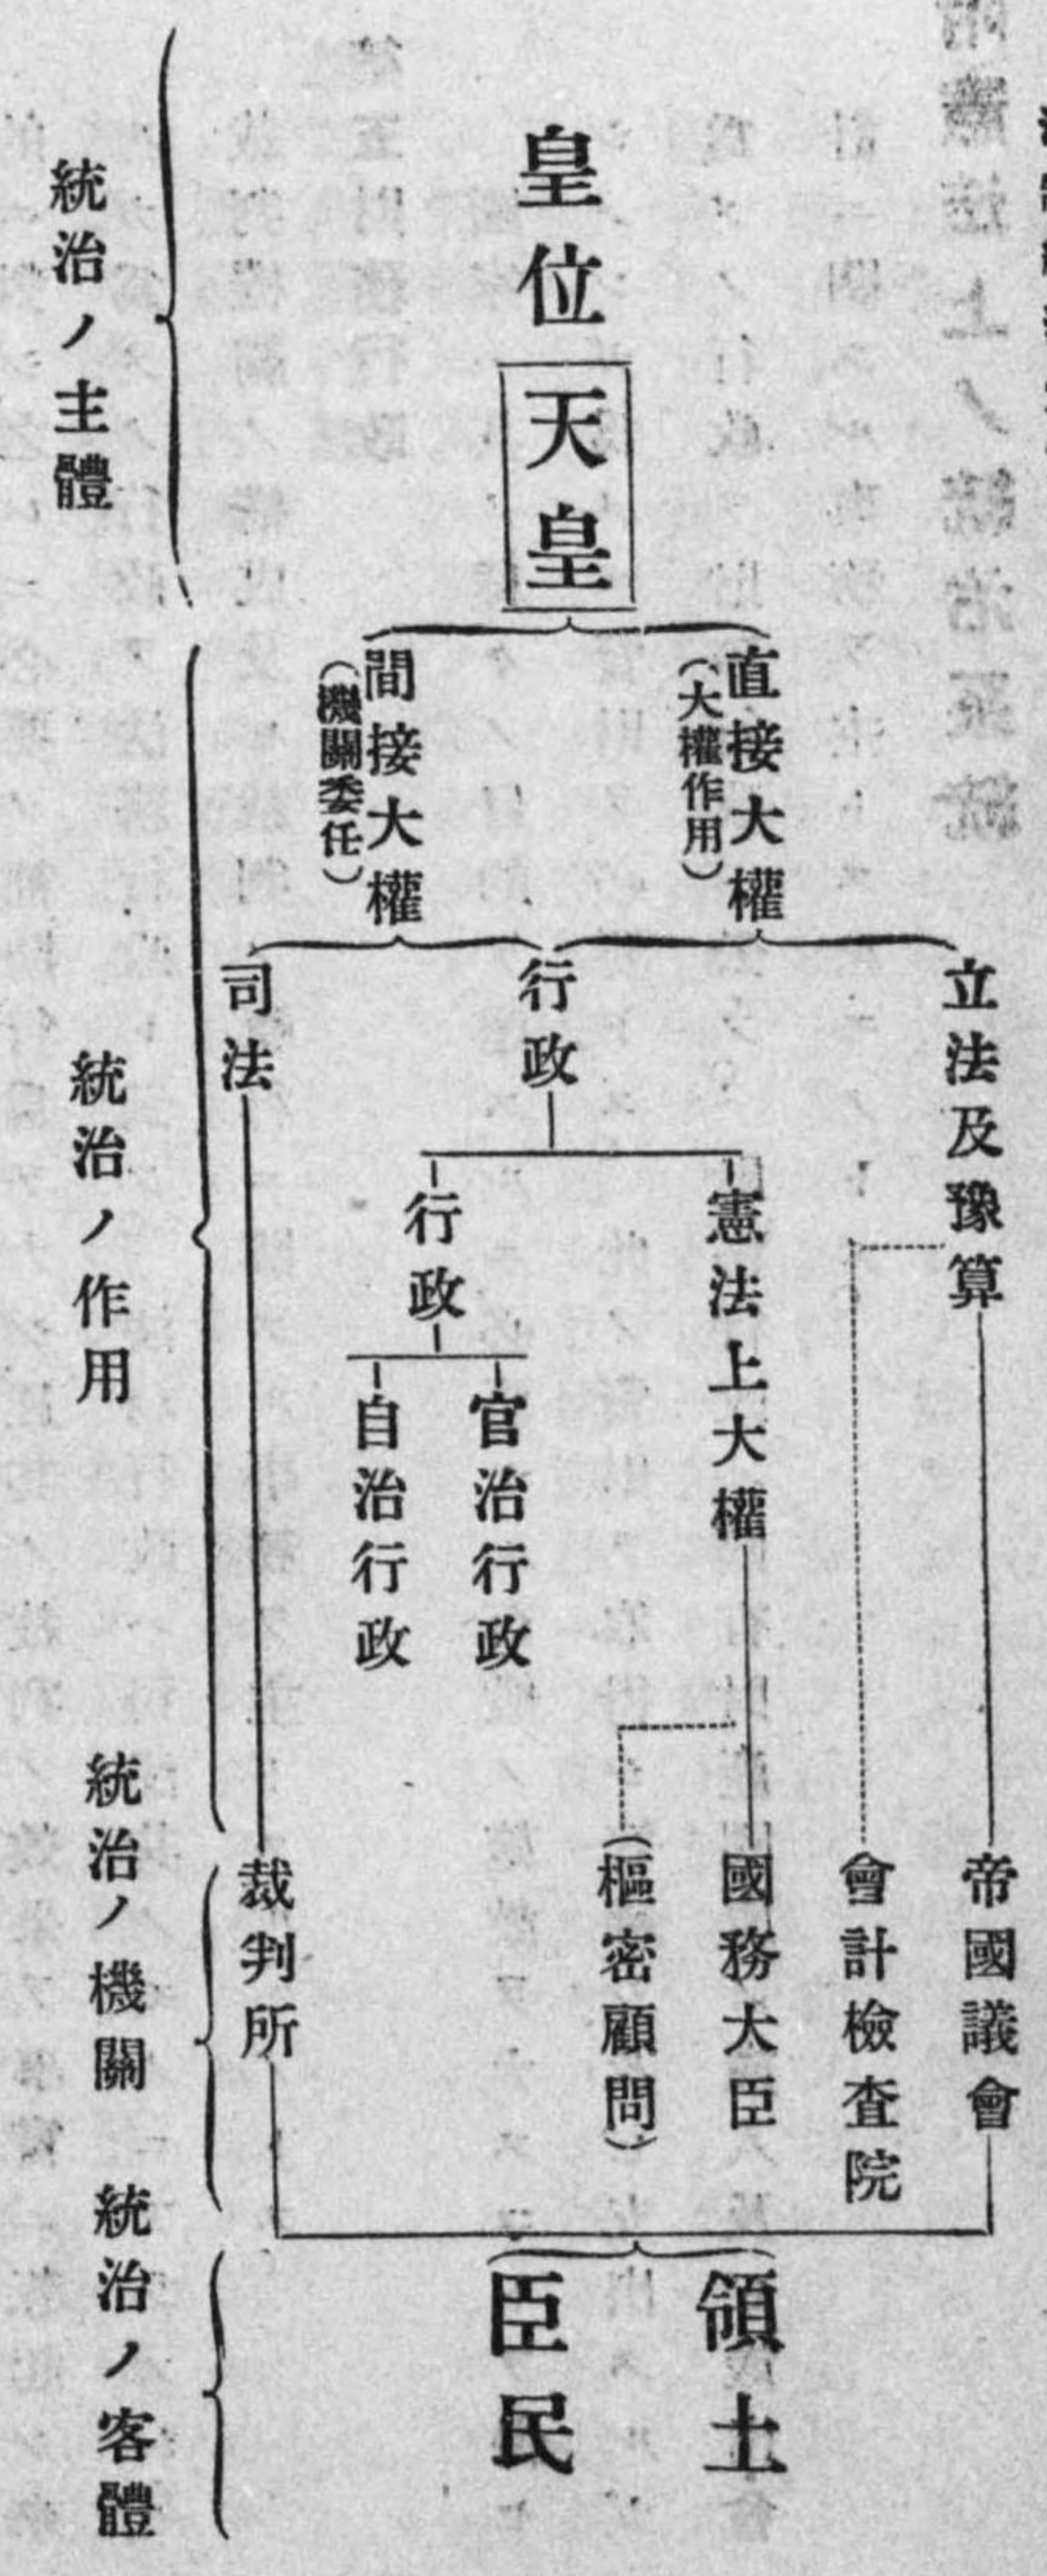 皇位
天皇
直接大權
(大權作用)
間接大權
(機關委任)
立法及豫算
行政
司法
憲法上大權
行政
官治行政
自治行政
帝國議會
會計檢査院
國務大臣
(樞密顧問)
裁判所
領土
臣民
統治ノ主體
統治ノ作用
統治ノ機關
統治ノ客體